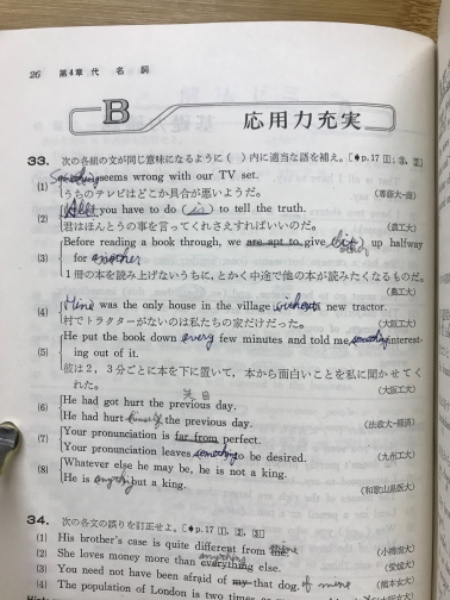 26 第4章 代 名 詞
B 応用力充実
33. 次の各組の文が同じ意味になるように( )内に適当な語を補え。[♦p.17 ①, ③, ②]
(1) Something seems wrong with our TV set.
うちのテレビはどこか具合が悪いようだ。 (専修大-商)
(2) (All) you have to do (is) to tell the truth.
君はほんとうの事を言ってくれさえすればいいのだ。 (農工大)
Before reading a book through, we are apt to give (it) up halfway
(3) for another
1冊の本を読み上げないうちに,とかく中途で他の本が読みたくなるものだ。
(農工大)
(4) Mine was the only house in the village without new tractor.
村でトラクターがないのは私たちの家だけだった。 (大阪工大)
He put the book down every few minutes and told me something interest-
(5) ing out of it.
彼は2,3分ごとに本を下に置いて,本から面白いことを私に聞かせてく
れた。 (大阪工大)
(6) He had got hurt the previous day.
He had hurt himself the previous day. (法政大-経済)
(7) Your pronunciation is far from perfect.
Your pronunciation leaves something to be desired. (九州工大)
(8) Whatever else he may be, he is not a king.
He is anything but a king. (和歌山県医大)
34. 次の各文の誤りを訂正せよ。[♦p.17 ①, ②, ③]
(1) His brother's case is quite different from mine (小樽商大)
anything
(2) She loves money more than everything else. (愛媛大)
(3) You need not have been afraid of my that dog. of mine (熊本女大)
(4) The population of London is two times as